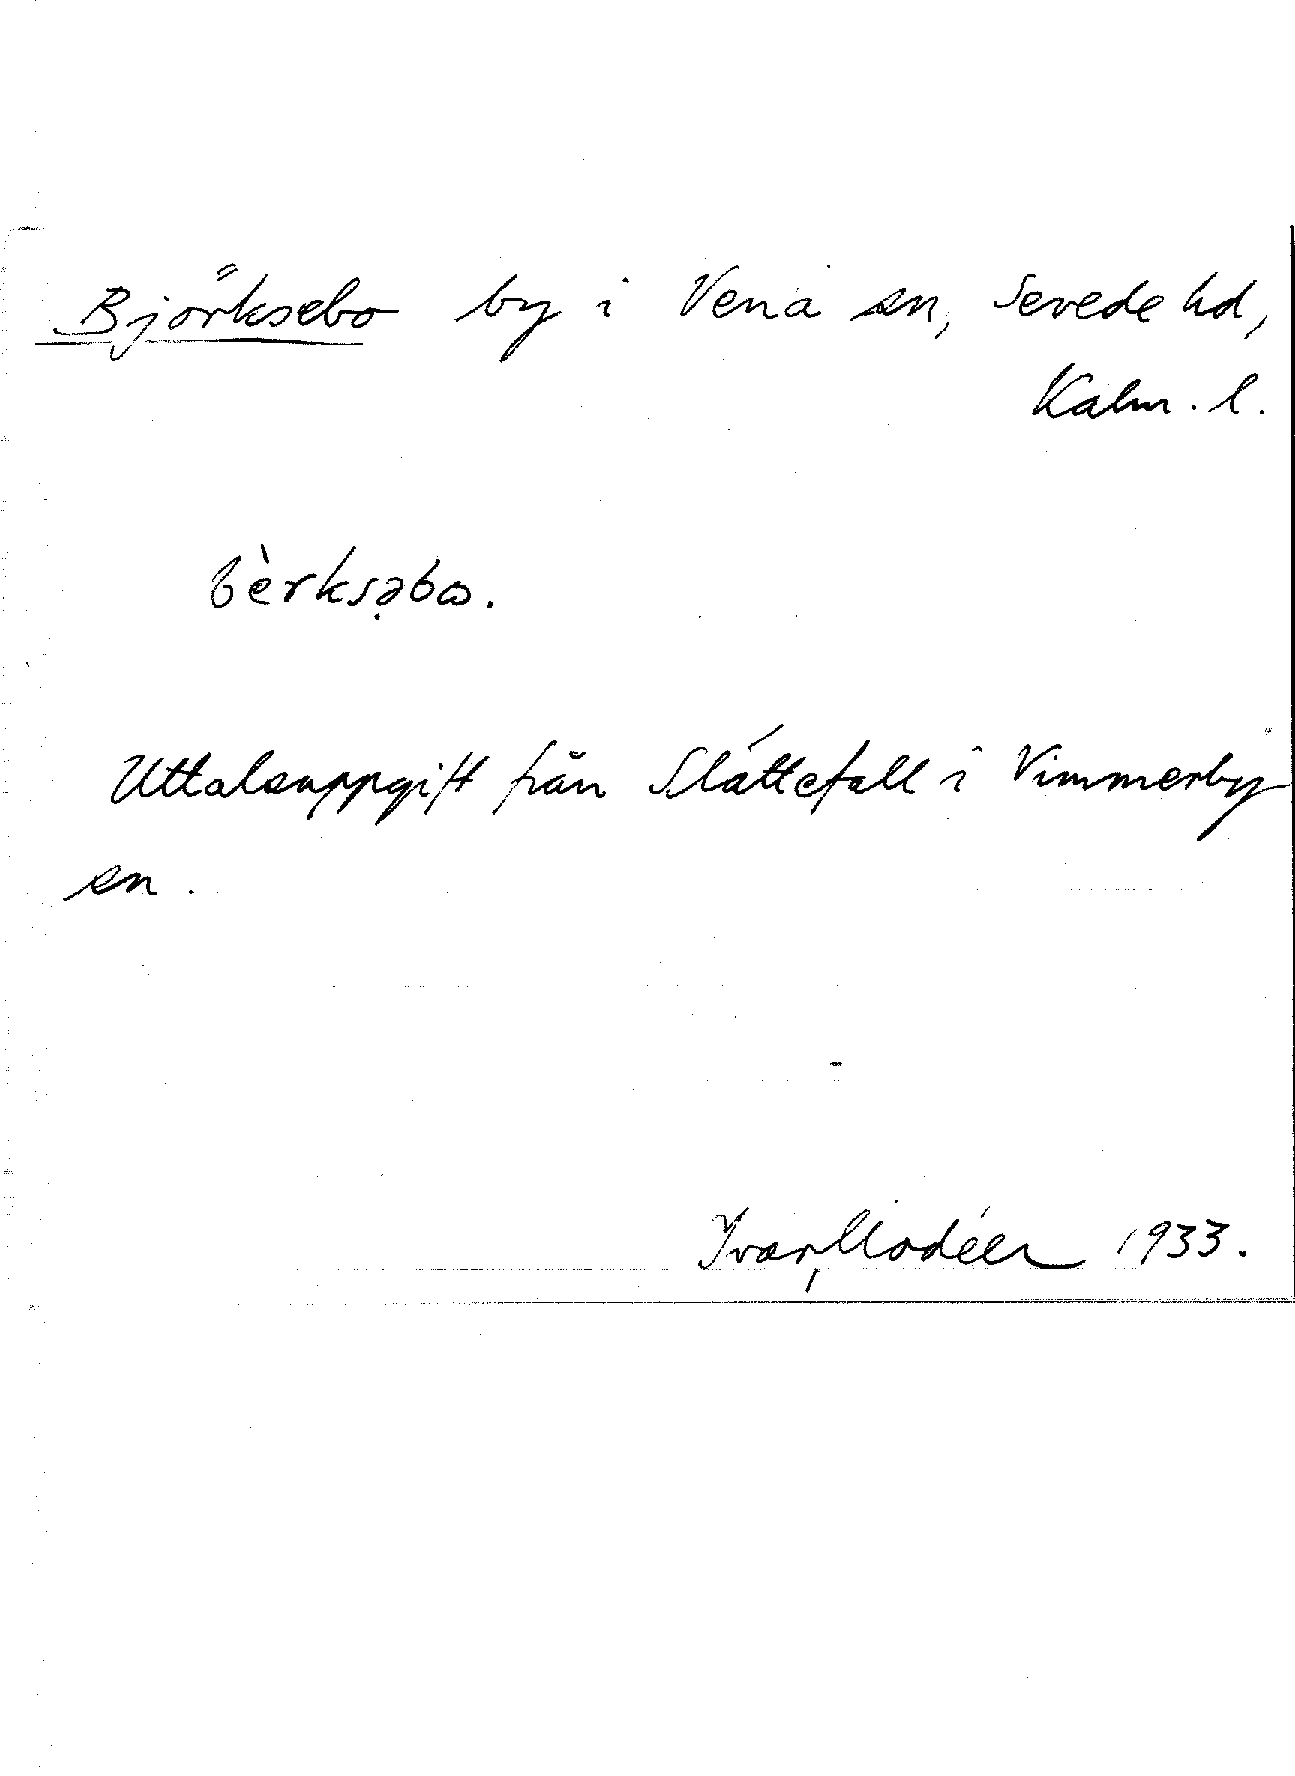 Björksebo by i Vena sn, Sevede hd,
Kalm. l.
bèrksə̣bω.
Uttalsuppgift från Slättefall i Vimmerby
sn.
Ivar Modéer 1933.